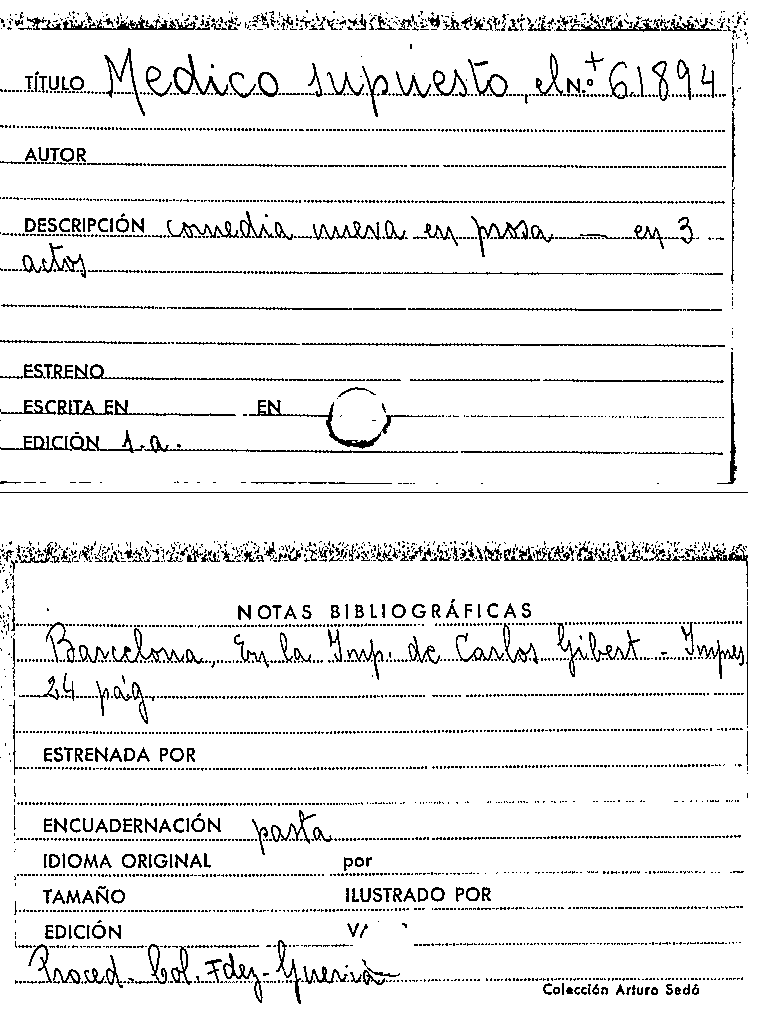 TÍTULO Medico supuesto, el N.º + 61894
AUTOR
DESCRIPCIÓN comedia nueva en prosa — en 3
actos
ESTRENO
ESCRITA EN EN
EDICIÓN s.a.
NOTAS BIBLIOGRÁFICAS
Barcelona, En la Imp. de Carlos Gibert - Impres
24 pág.
ESTRENADA POR
ENCUADERNACIÓN pasta
IDIOMA ORIGINAL por
TAMAÑO ILUSTRADO POR
EDICIÓN
Proced. Col. Fdez-Guerra
Colección Arturo Sedó